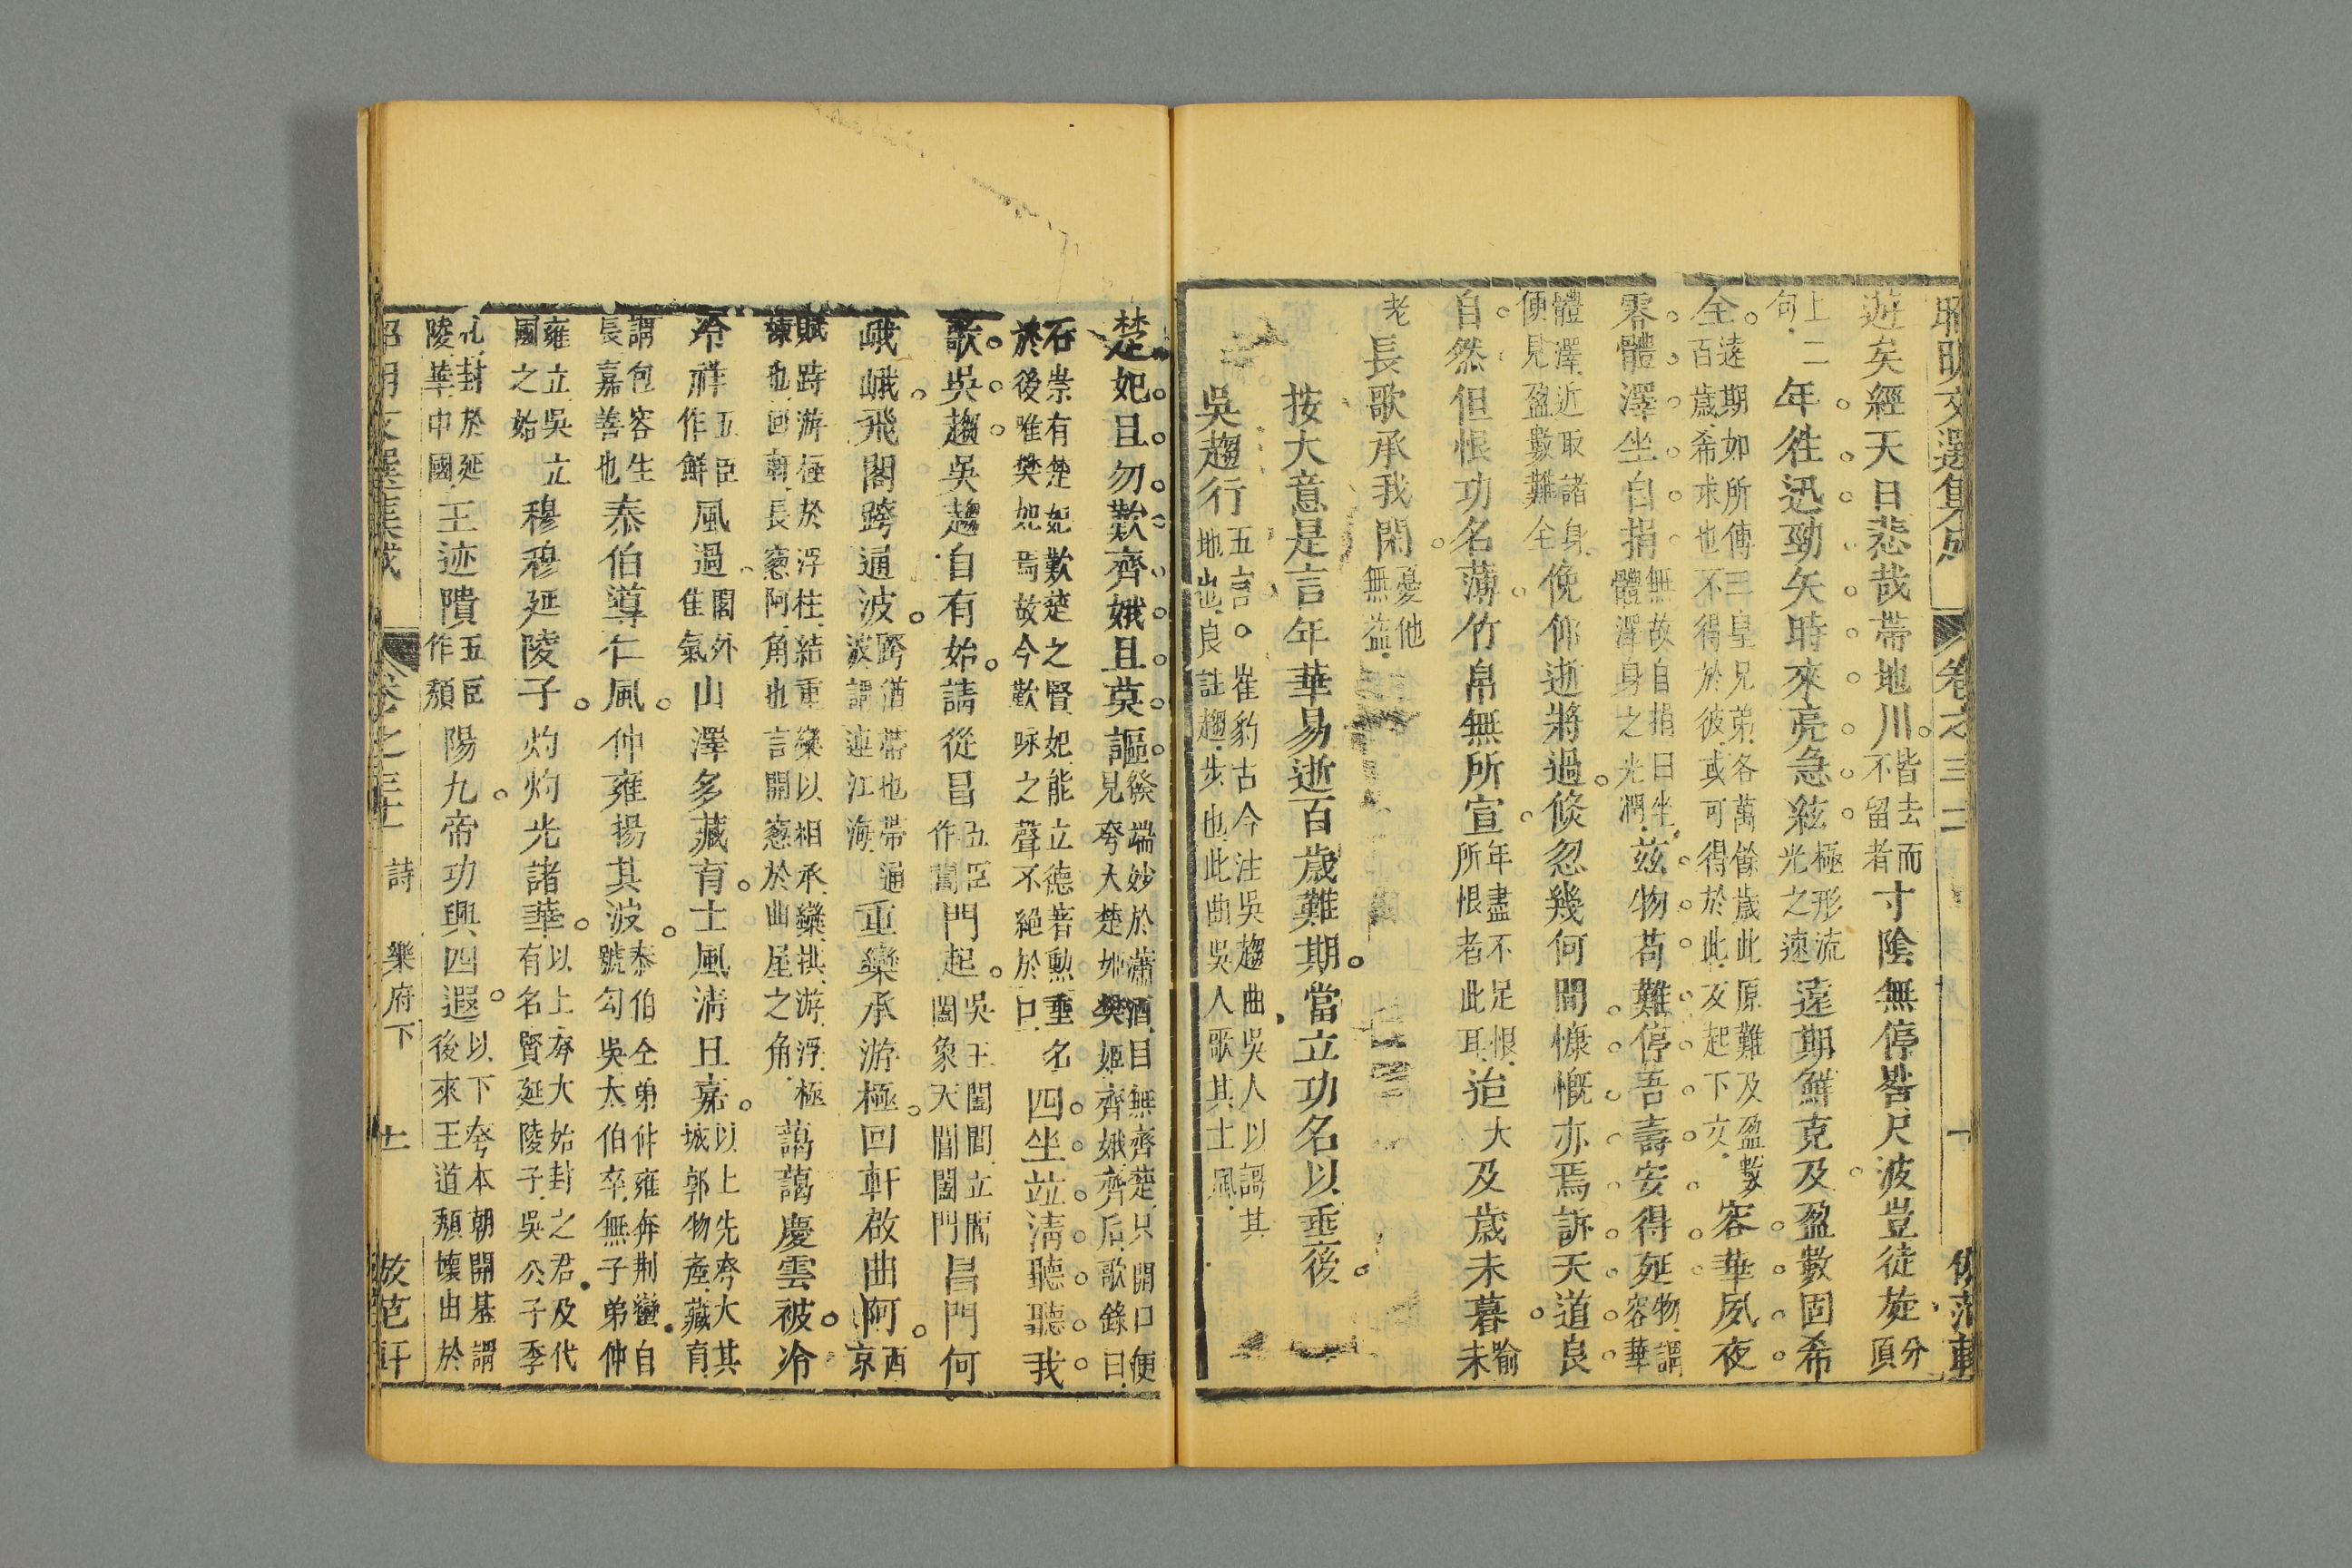 昭明文選集成 卷之三十二 十 倣范軒
遊矣經天日悲哉帶地川皆去而不留者寸陰無停晷尺波豈徒旋分頂
上二句年往迅勁矢時來亮急絃極形流光之速遠期鮮克及盈數固希
全遠期如所傳三皇兄弟各萬餘歲此原難及盈數百歲希求也不得於彼或可得於此反起下文容華夙夜
零體澤坐自捐無故自捐曰坐體澤身之光潤茲物苟難停吾壽安得延物謂容華
體澤近取諸身便見盈數難全俛仰逝將過倏忽幾何間慷慨亦焉訴天道良
自然但恨功名薄竹帛無所宣年盡不足恨所恨者此耳迨大及歲未暮喻未
老長歌承我閑憂他無益
按大意是言年華易逝百歲難期當立功名以垂後
吳趨行五言崔豹古今注吳趨曲吳人以謌其地也良註趨步也此曲吳人歌其土風
楚妃且勿歎齊娥且莫謳發端妙於蕭洒目無齊楚只開口便見夸大楚妃樊姬齊娥齊后歌錄曰
石崇有楚妃歎楚之賢妃能立德著勲垂名於後唯樊妃焉故今歎咏之聲不絕於口四坐竝清聽聽我
歌吳趨吳趨自有始請從昌五臣作閶門起吳王闔閭立閶闔象天閶闔門昌門何
峨峨飛閣跨通波跨猶帶也帶通波謂連江海重欒承游極回軒啟曲阿西京
賦跱游極於浮柱結重欒以相承欒拱游浮極棟也回朝長窻阿角也言開窻於曲屋之角藹藹慶雲被泠
泠祥五臣作鮮風過閣外佳氣山澤多藏育土風清且嘉以上先夸大其城郭物產藏育
謂包容生長嘉善也泰伯導仁風仲雍揚其波泰伯仝弟仲雍奔荆蠻自號勾吳太伯卒無子弟仲
雍立吳立國之始穆穆延陵子灼灼光諸華以上夸大始封之君及代有名賢延陵子吳公子季
札封於延陵華中國王迹隤五臣作頽陽九帝功興四遐以下夸本朝開基謂後來王道頽壞出於
昭明文選集成 卷之三十二 詩 樂府下 十一 倣范軒